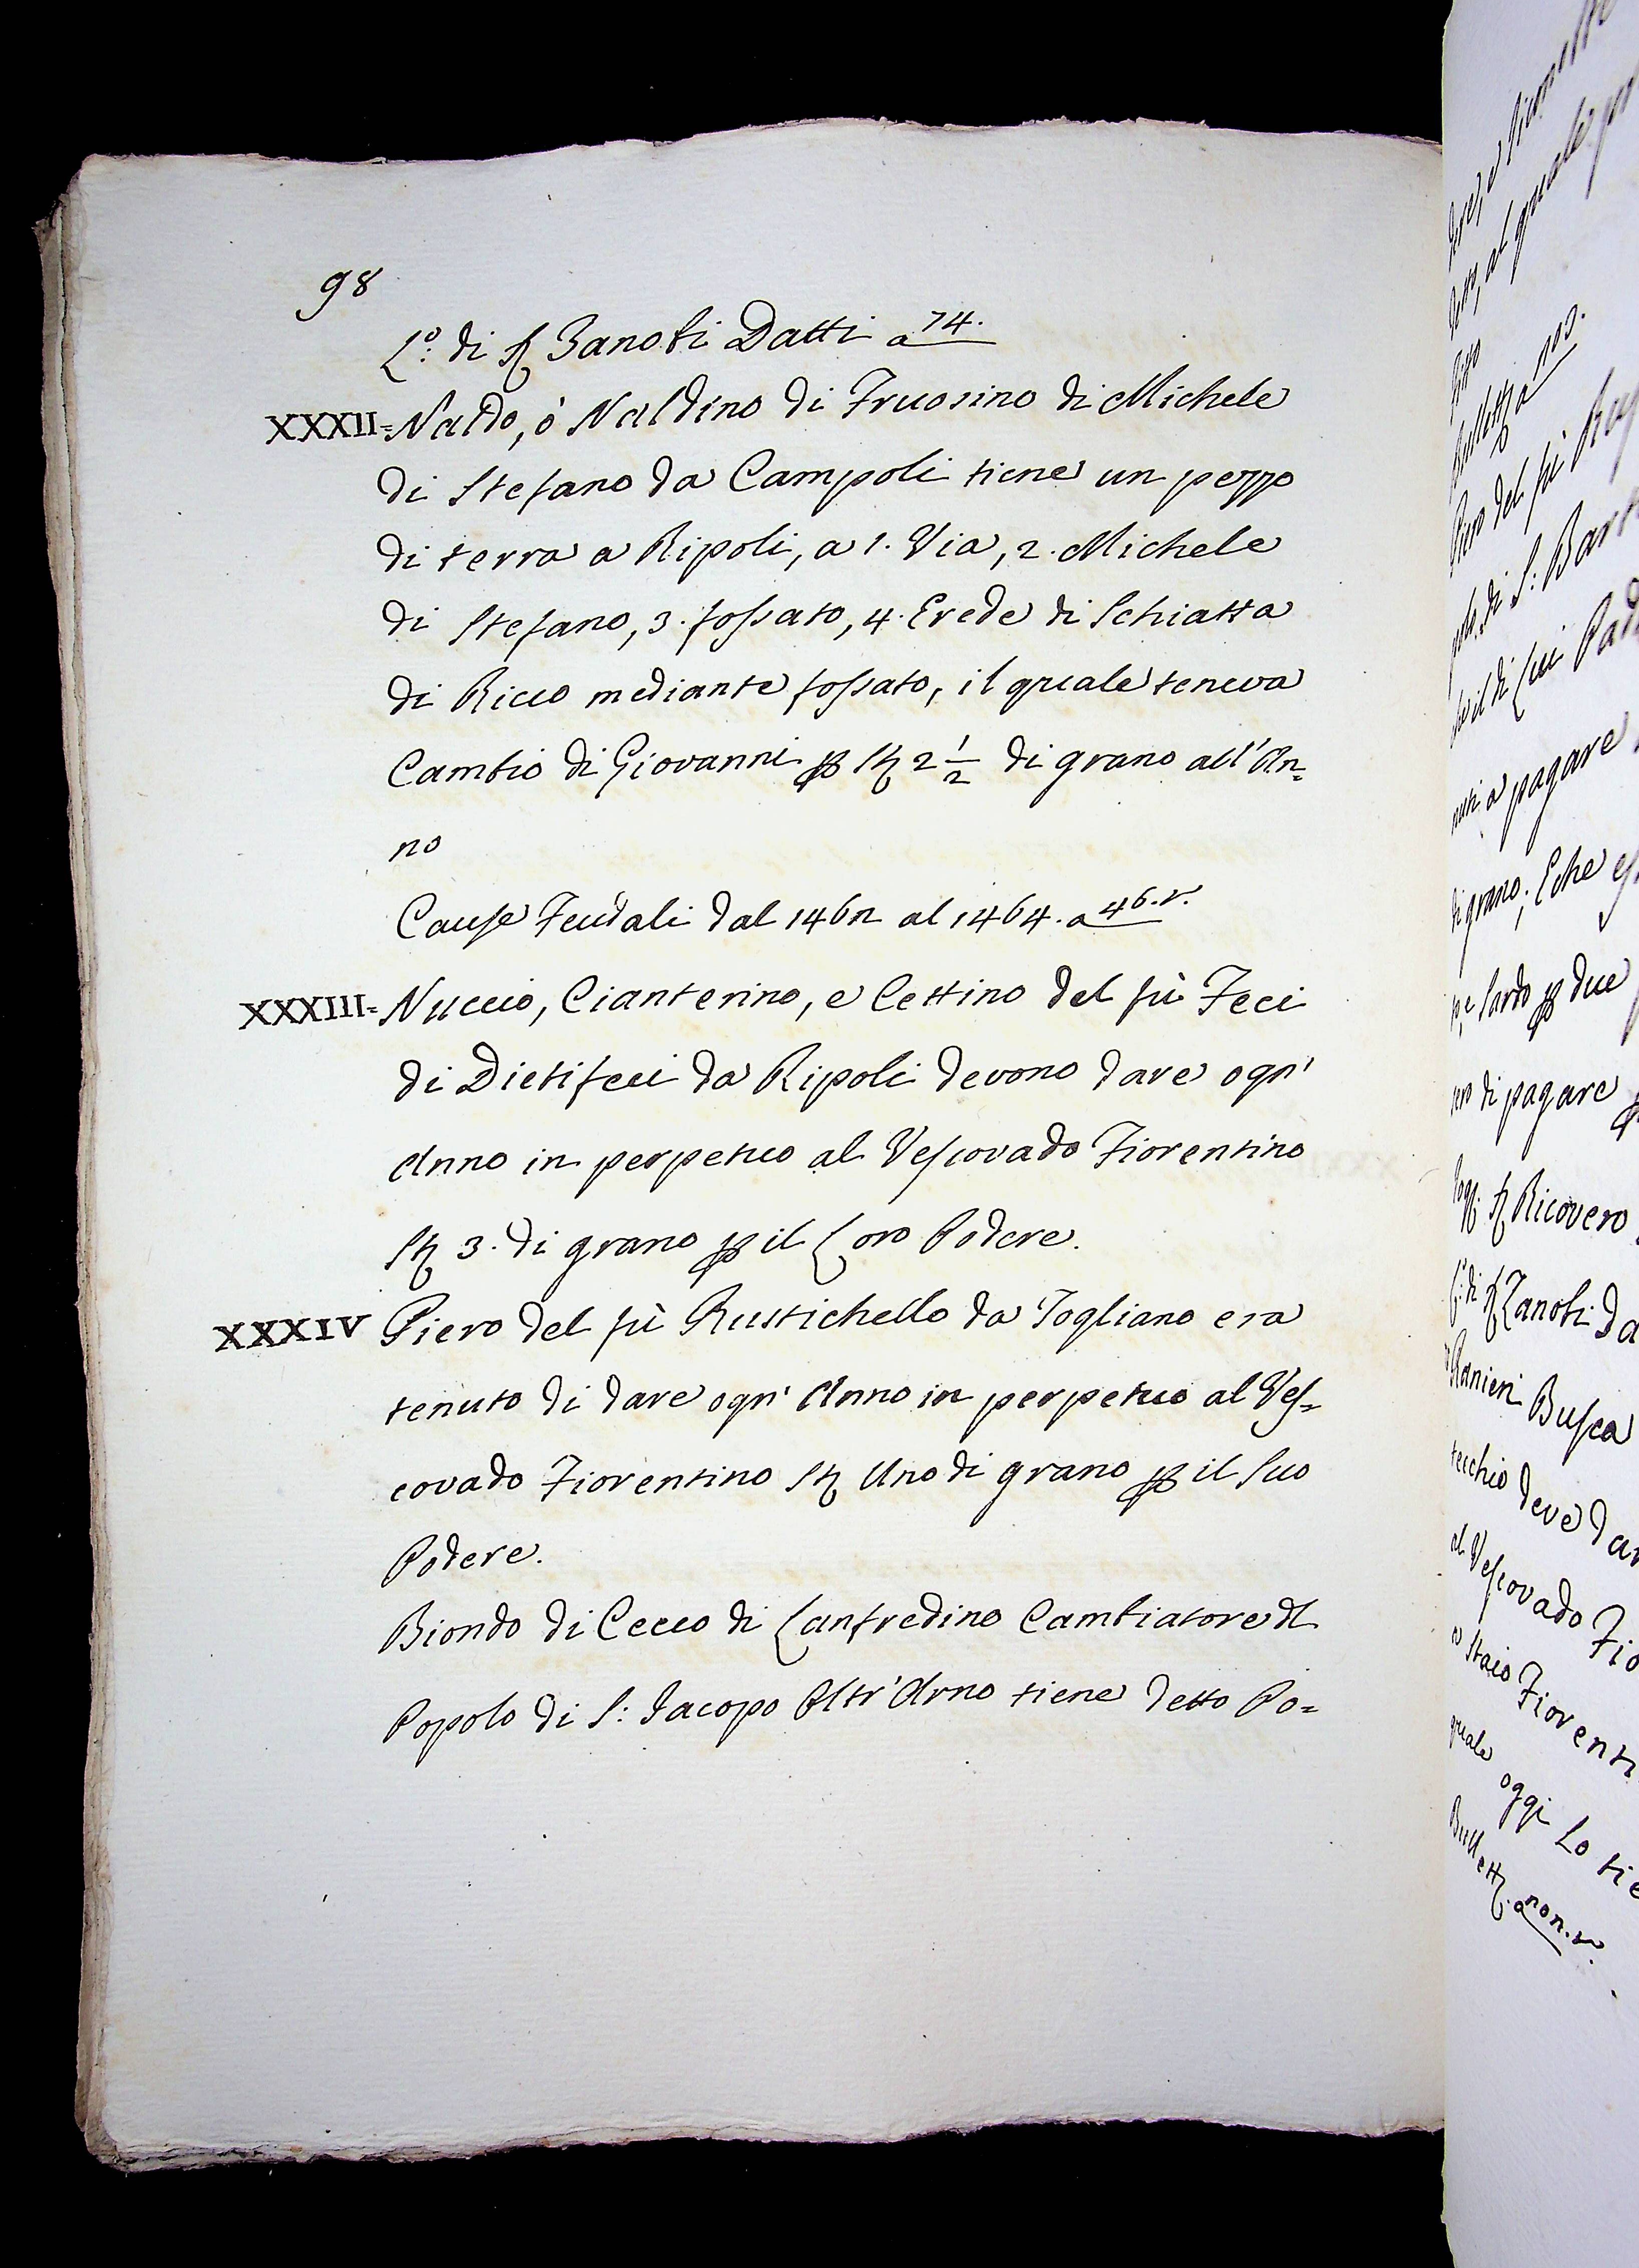 98
L.º di S. Zanobi Datti a 74.
XXXII = Naldo, ò Naldino di Fruosino di Michele
di Stefano da Campoli tiene un pezzo
di terra a Ripoli, a 1. Via, 2. Michele
di Stefano, 3. fossato, 4. Erede di Schiatta
di Ricco mediante fossato, il quale teneva
Cambio di Giovanni p St 2 1/2 di grano all'An=
no
Cause Feudali dal 1462 al 1464. a 46. v.
XXXIII = Nuccio, Cianterino, e Cettino del fù Feci
di Dietifeci da Ripoli devono dare ogn'
Anno in perpetuo al Vescovado Fiorentino
St 3. di grano p il Loro Podere.
XXXIV Piero del fù Rustichello da Fogliano era
tenuto di dare ogn' Anno in perpetuo al Ves=
covado Fiorentino St Uno di grano p il Suo
Podere.
Biondo di Cecco di Lanfredino Cambiatore dl
Popolo di S: Jacopo Oltr'Arno tiene detto Po=
al quale
Bullett a 203.
Piero del fù
di S: Bar
il di Lui Pad
a pagare
di grano; E che
Sardo p due
di pagare
Ricovero
Zanobi Da
Ranieri Busca
tecchio deve dar
al Vescovado Fio
Staio Fiorenti
quale oggi Lo tie
Bullett. a 202. v.